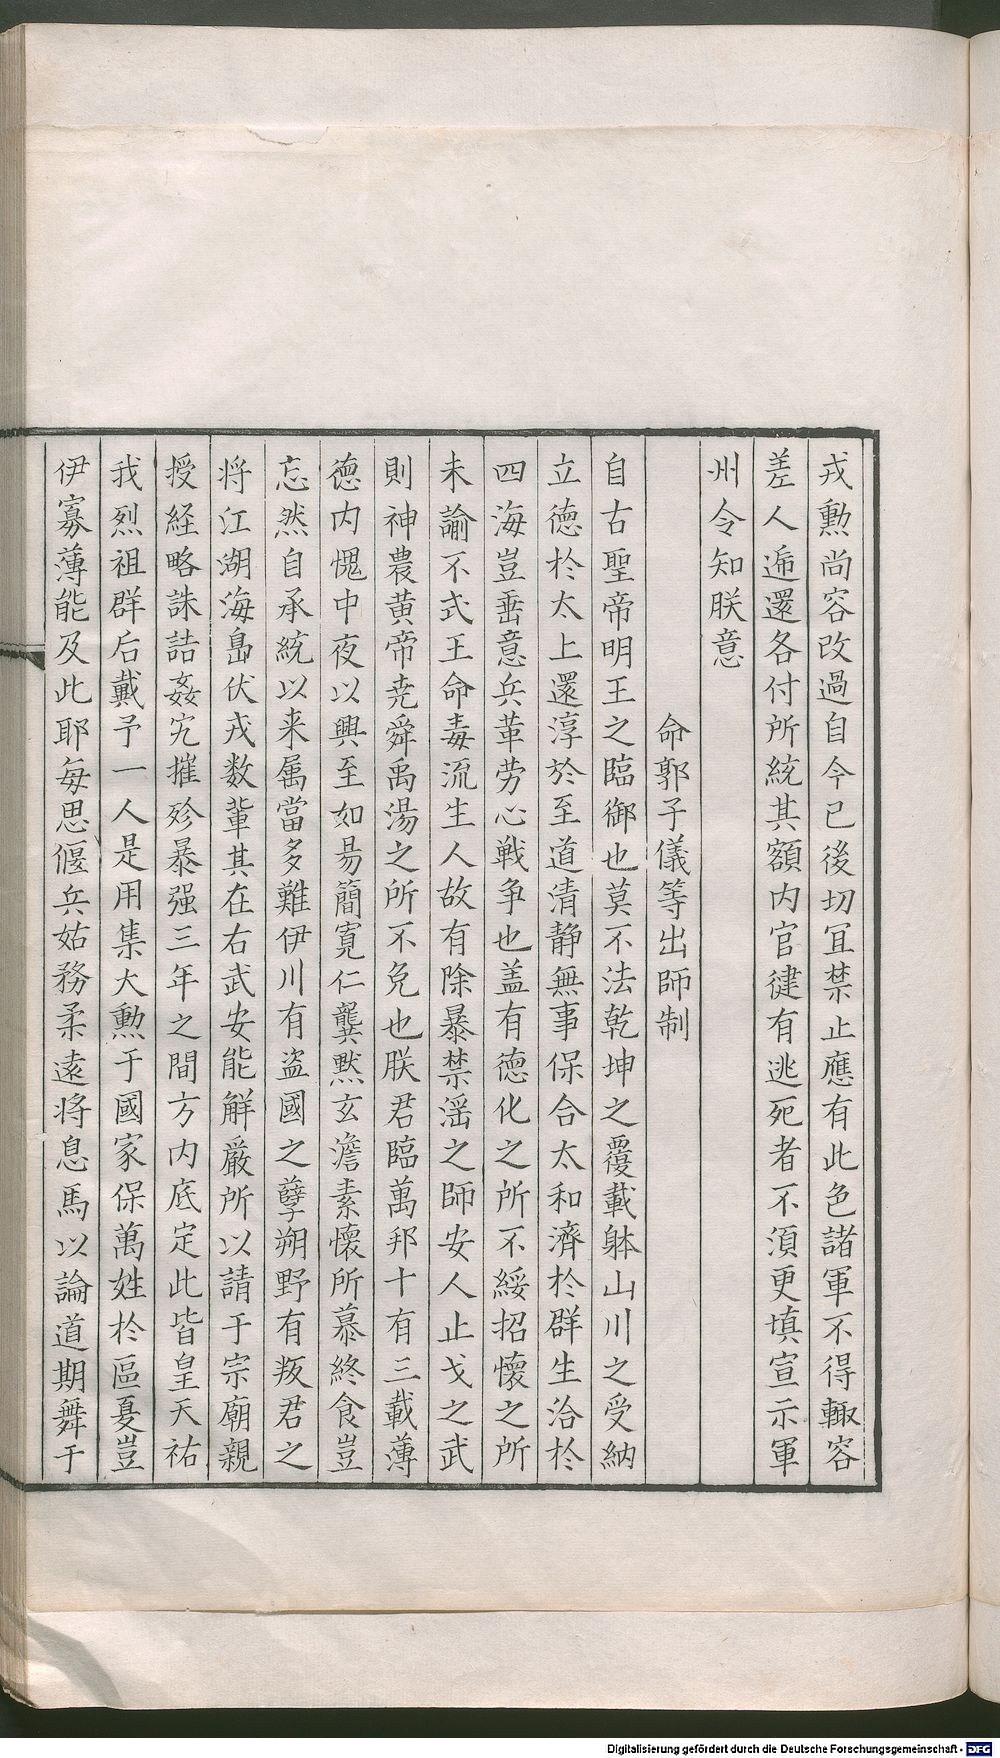 戎勲尚容改過自今已後切冝禁止應有此色諸軍不得輙容
差人逓還各付所統其額内官徤有逃死者不湏更填宣示軍
州令知朕意
命郭子儀等出師制
自古聖帝明王之臨御也莫不法乾坤之覆載躰山川之受納
立徳於太上還淳於至道清静無事保合太和濟於群生洽於
四海豈垂意兵革劳心戦争也盖有德化之所不綏招懷之所
未諭不式王命毒流生人故有除暴禁滛之師安人止戈之武
則神農黄帝尭舜禹湯之所不免也朕君臨萬邦十有三載薄
德内愧中夜以興至如昜簡寛仁龔黙玄澹素懷所慕終食豈
忘然自承統以来属當多難伊川有盗國之孽朔野有叛君之
将江湖海島伏戎数輩其在右武安能解嚴所以請于宗廟親
授経略誅詰姦宄摧殄暴强三年之間方内底定此皆皇天祐
我烈祖群后戴予一人是用集大勲于國家保萬姓於區夏豈
伊寡薄能及此耶每思偃兵姑務柔逺将息馬以論道期舞于
Digitalisierung gefördert durch die Deutsche Forschungsgemeinschaft - DFG